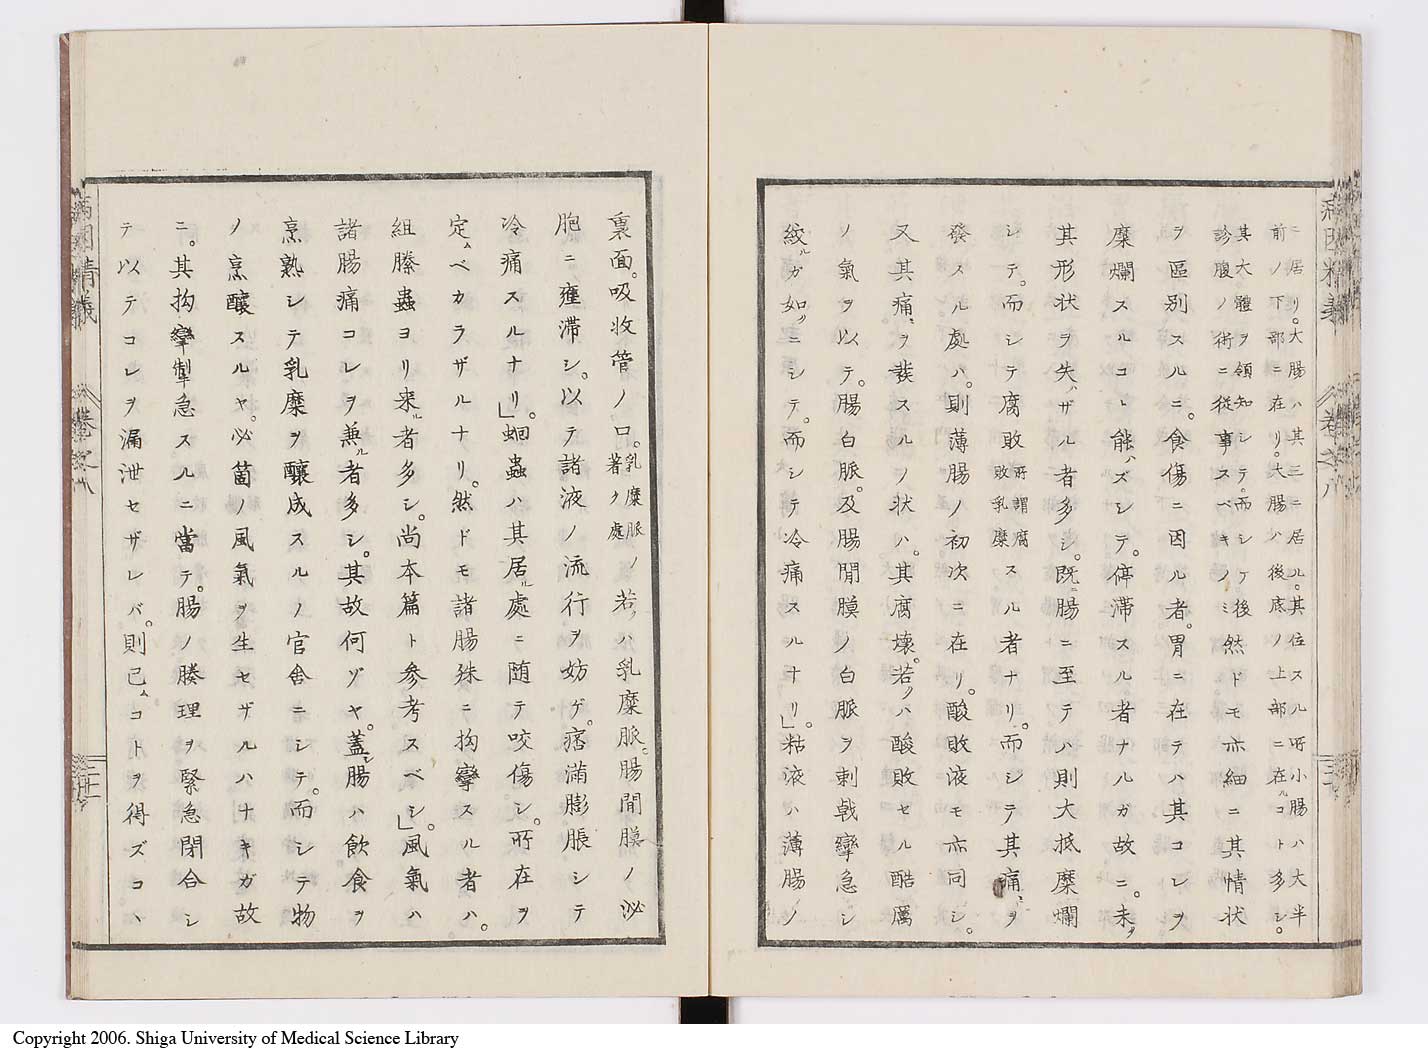 ニ居リ。大腸ハ其三ニ居ル。其位スル所小腸ハ大半
前ノ下部ニ在リ。大腸ハ後底ノ上部ニ在ルコト多シ。
其大體ヲ領知シテ。而シテ後
診腹ノ術ニ從事スベキノミ
然ドモ亦細ニ其情状
ヲ區別スルニ。食傷ニ因ル者。胃ニ在テハ其コレヲ
糜爛スルコト能ハズシテ。停滞スル者ナルガ故ニ。未ダ
其形状ヲ失ハザル者多シ。既ニ腸ニ至テハ則大抵糜爛
シテ。而シテ腐敗
所謂腐
敗乳糜
スル者ナリ。而シテ其痛ヲ
發スル處ハ。則薄腸ノ初次ニ在リ。酸敗液モ亦同シ。
又其痛ヲ發スルノ状ハ。其腐壊。若クハ酸敗セル酷厲
ノ氣ヲ以テ。腸白脈。及腸間膜ノ白脈ヲ刺戟攣急シ
絞ルガ如クニシテ。而シテ冷痛スルナリ」。粘液ハ薄腸ノ
裏面。吸收管ノ口。
乳糜脈
著ク處
ノ若クハ乳糜脈。腸間膜ノ泌
胞ニ壅滞シ。以テ諸液ノ流行ヲ妨ゲ。痞滿膨脹シテ
冷痛スルナリ」。蛔蟲ハ其居ル處ニ随テ咬傷シ。所在ヲ
定ムベカラザルナリ。然ドモ諸腸殊ニ拘攣スル者ハ。
組縢蟲ヨリ来ル者多シ。尚本篇ト参考スベシ」。風氣ハ
諸腸痛コレヲ兼ル者多シ。其故何ゾヤ。蓋シ腸ハ飲食ヲ
烹熟シテ乳糜ヲ釀成スルノ官舎ニシテ。而シテ物
ノ烹釀スルヤ。必箇ノ風氣ヲ生セザルハナキガ故
ニ。其拘攣掣急スルニ當テ。腸ノ縢理ヲ緊急閉合シ
テ以テコレヲ漏泄セザレバ。則已ムコトヲ得ズコヽ
病因精義
巻之八